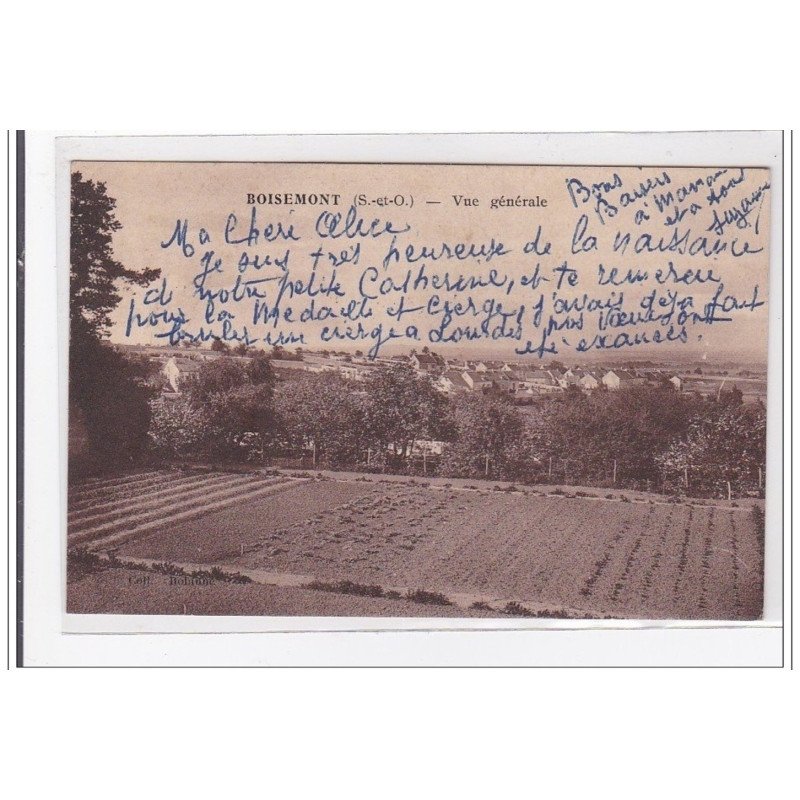 BOISEMONT (S.-et-O.) — Vue générale
Bons
Baisers
à Maman
et a tout
Suzanne
Ma Cheré Alice
Je suis très heureuse de la naissance
d notre petite Catherine, et te remercie
pour la Medaille et Cierge, j'avais déja fait
bruler un cierge a Lourdes, nos Vœux sont
été exaucés.
Coll.